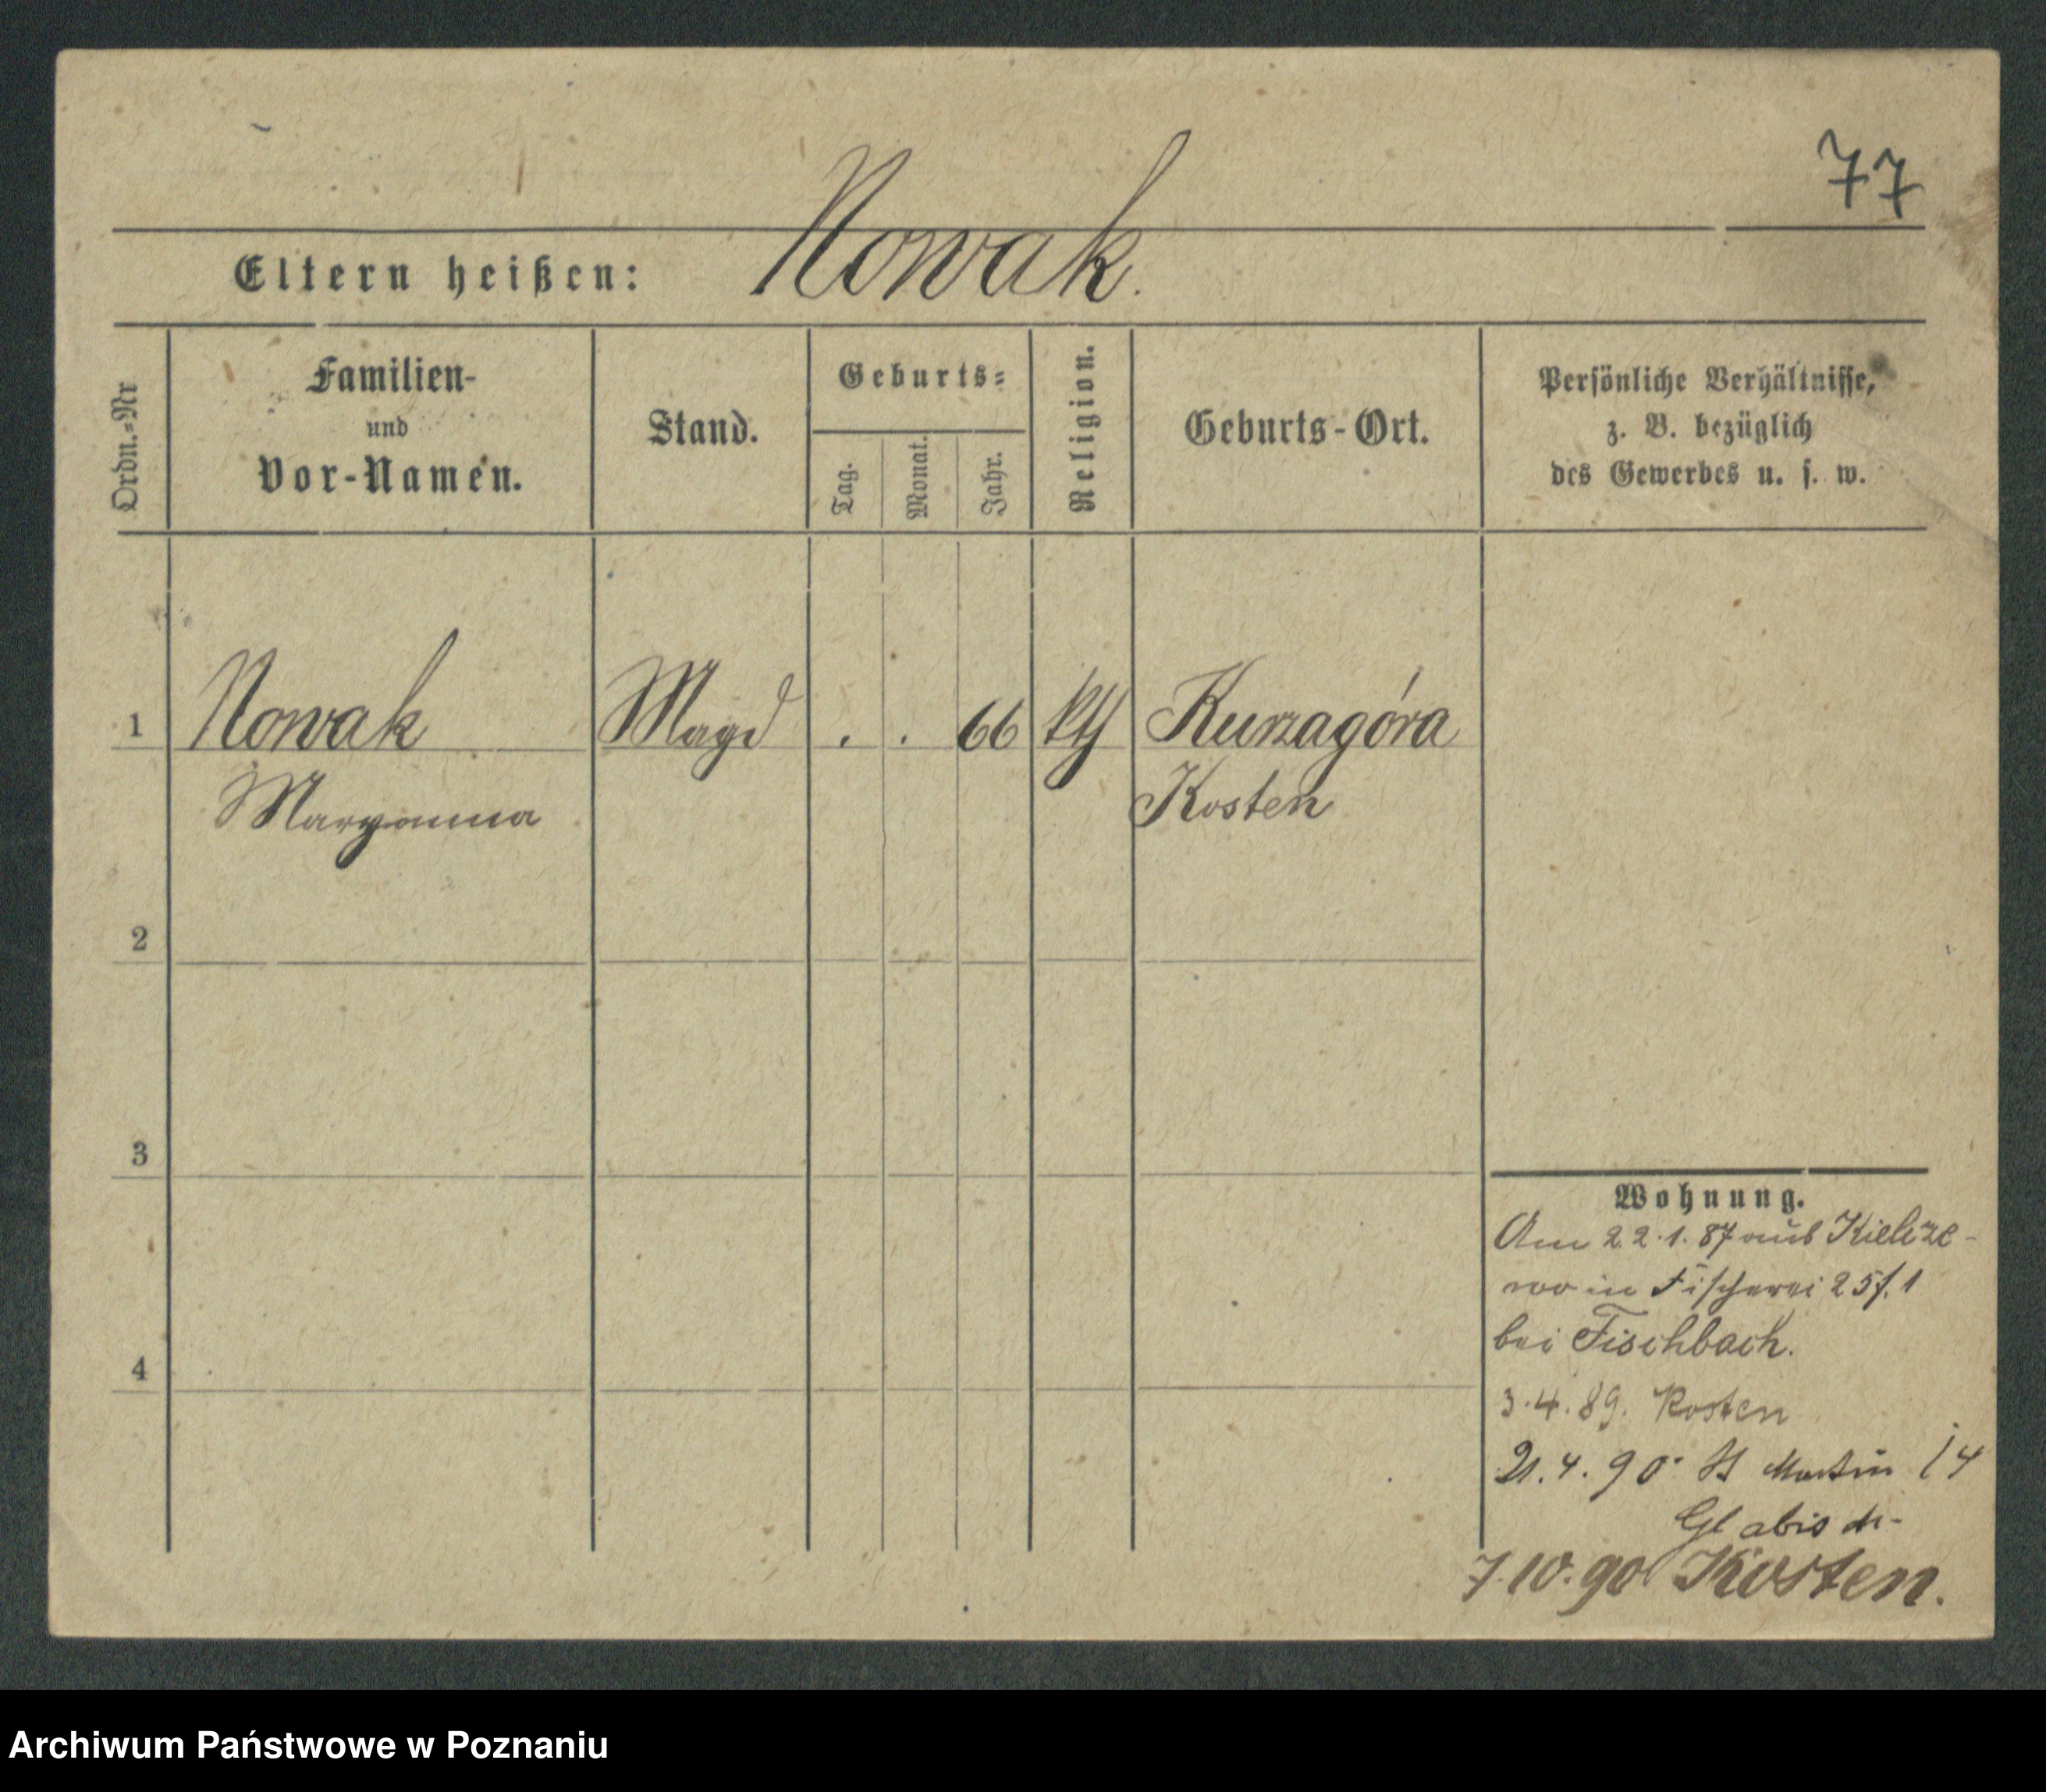 77
Nowak.
Eltern heißen:
Ordn.-Nr
Familien-
und
Vor-Namen.
Stand.
Geburts-
Tag.
Monat.
Jahr.
Religion.
Geburts-Ort.
Persönliche Verhältnisse,
z. B. bezüglich
des Gewerbes u. s. w.
1 Nowak Magd . . 66 kth Kurzagóra
Maryanna Kosten
2
3
4
Wohnung.
Am 22.1.87 aus Kielcze-
wo in Fischerei 25 f. 1
bei Fischbach.
3.4.89. Kosten
21.4.90. St Martin 14
7.10.90 Kosten.
Archiwum Państwowe w Poznaniu